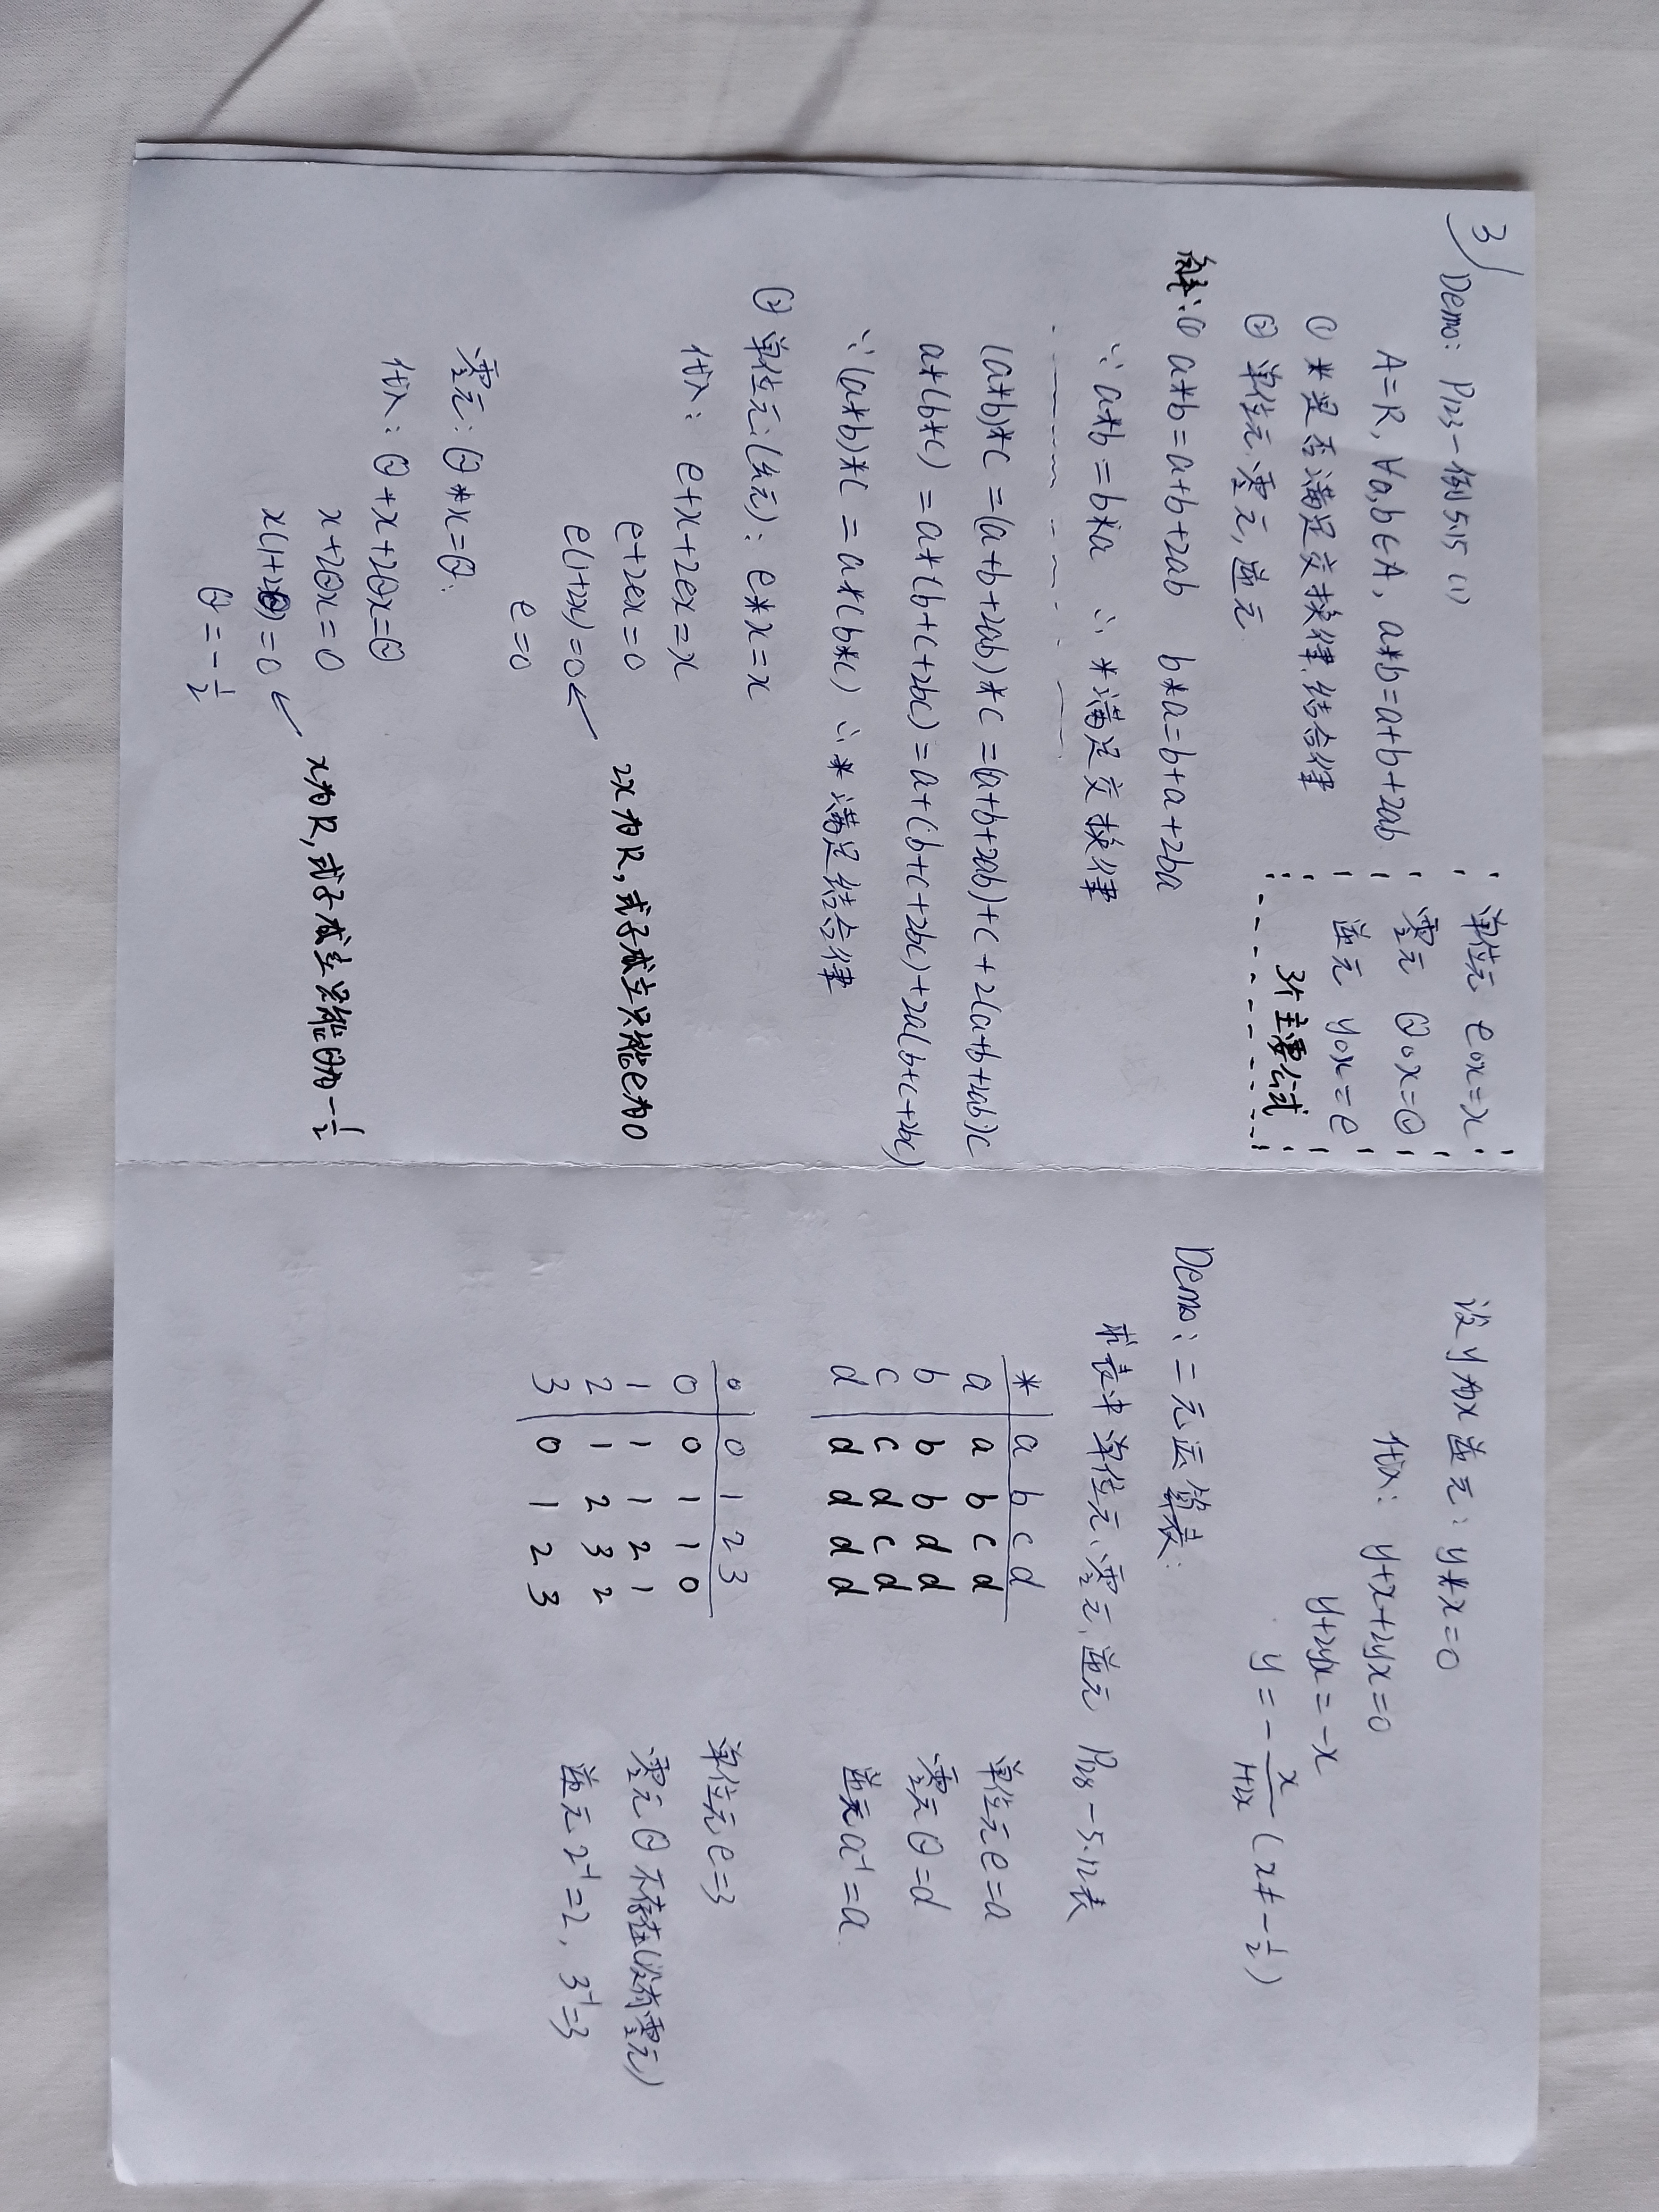 3)
Demo: P123-例5.15 (1)
A=R, ∀a,b∈A, a*b=a+b+2ab
① *是否满足交换律、结合律
② 单位元、零元, 逆元
单位元 e∘x=x
零元 θ∘x=θ
逆元 y∘x=e
3个主要公式
解:① a*b=a+b+2ab b*a=b+a+2ba
∵ a*b=b*a ∴ *满足交换律
(a*b)*c =(a+b+2ab)*c =(a+b+2ab)+c+2(a+b+2ab)c
a*(b*c) =a*(b+c+2bc)=a+(b+c+2bc)+2a(b+c+2bc)
∵(a*b)*c = a*(b*c) ∴*满足结合律
② 单位元:(幺元): e*x=x
代入: e+x+2ex=x
e+2ex=0
2x为R,式子成立只能e为0
e(1+2x)=0
e=0
零元: θ*x=θ.
代入: θ+x+2θx=θ
x+2θx=0
x为R,式子成立只能θ为-1/2
x(1+2θ)=0
θ=-1/2
设y为x逆元: y*x=0
代入: y+x+2yx=0
y+2yx=-x
y=-x/(1+2x) (x≠-1/2)
Demo: 二元运算表:
求表中单位元、零元、逆元 P128-5.12表
* a b c d
a a b c d
b b b d d
c c d c d
d d d d d
单位元e=a
零元θ=d
逆元a⁻¹=a.
∘ 0 1 2 3
0 0 1 1 0
1 1 1 2 1
2 1 2 3 2
3 0 1 2 3
单位元e=3
零元θ不存在(没有零元)
逆元2⁻¹=2, 3⁻¹=3